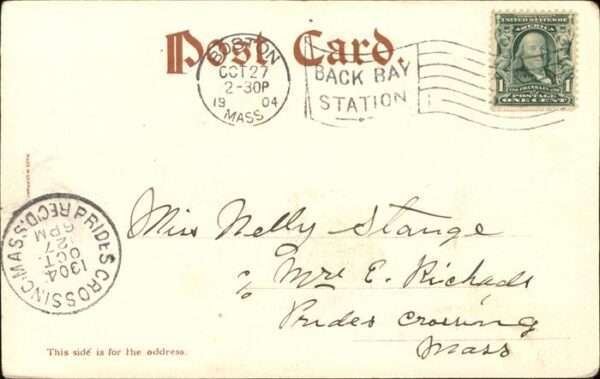 Post Card.
BOSTON
OCT 27
2-30P
19 04
MASS
BACK BAY
STATION
UNITED STATES OF
AMERICA
1 1
POSTAGE
ONE CENT
PRIDES CROSSING MASS. REC'D.
6 PM
27
OCT.
1904
Miss Nelly Stange
c/o Mrs E. Richads
Prides Crossing
Mass
This side is for the address.